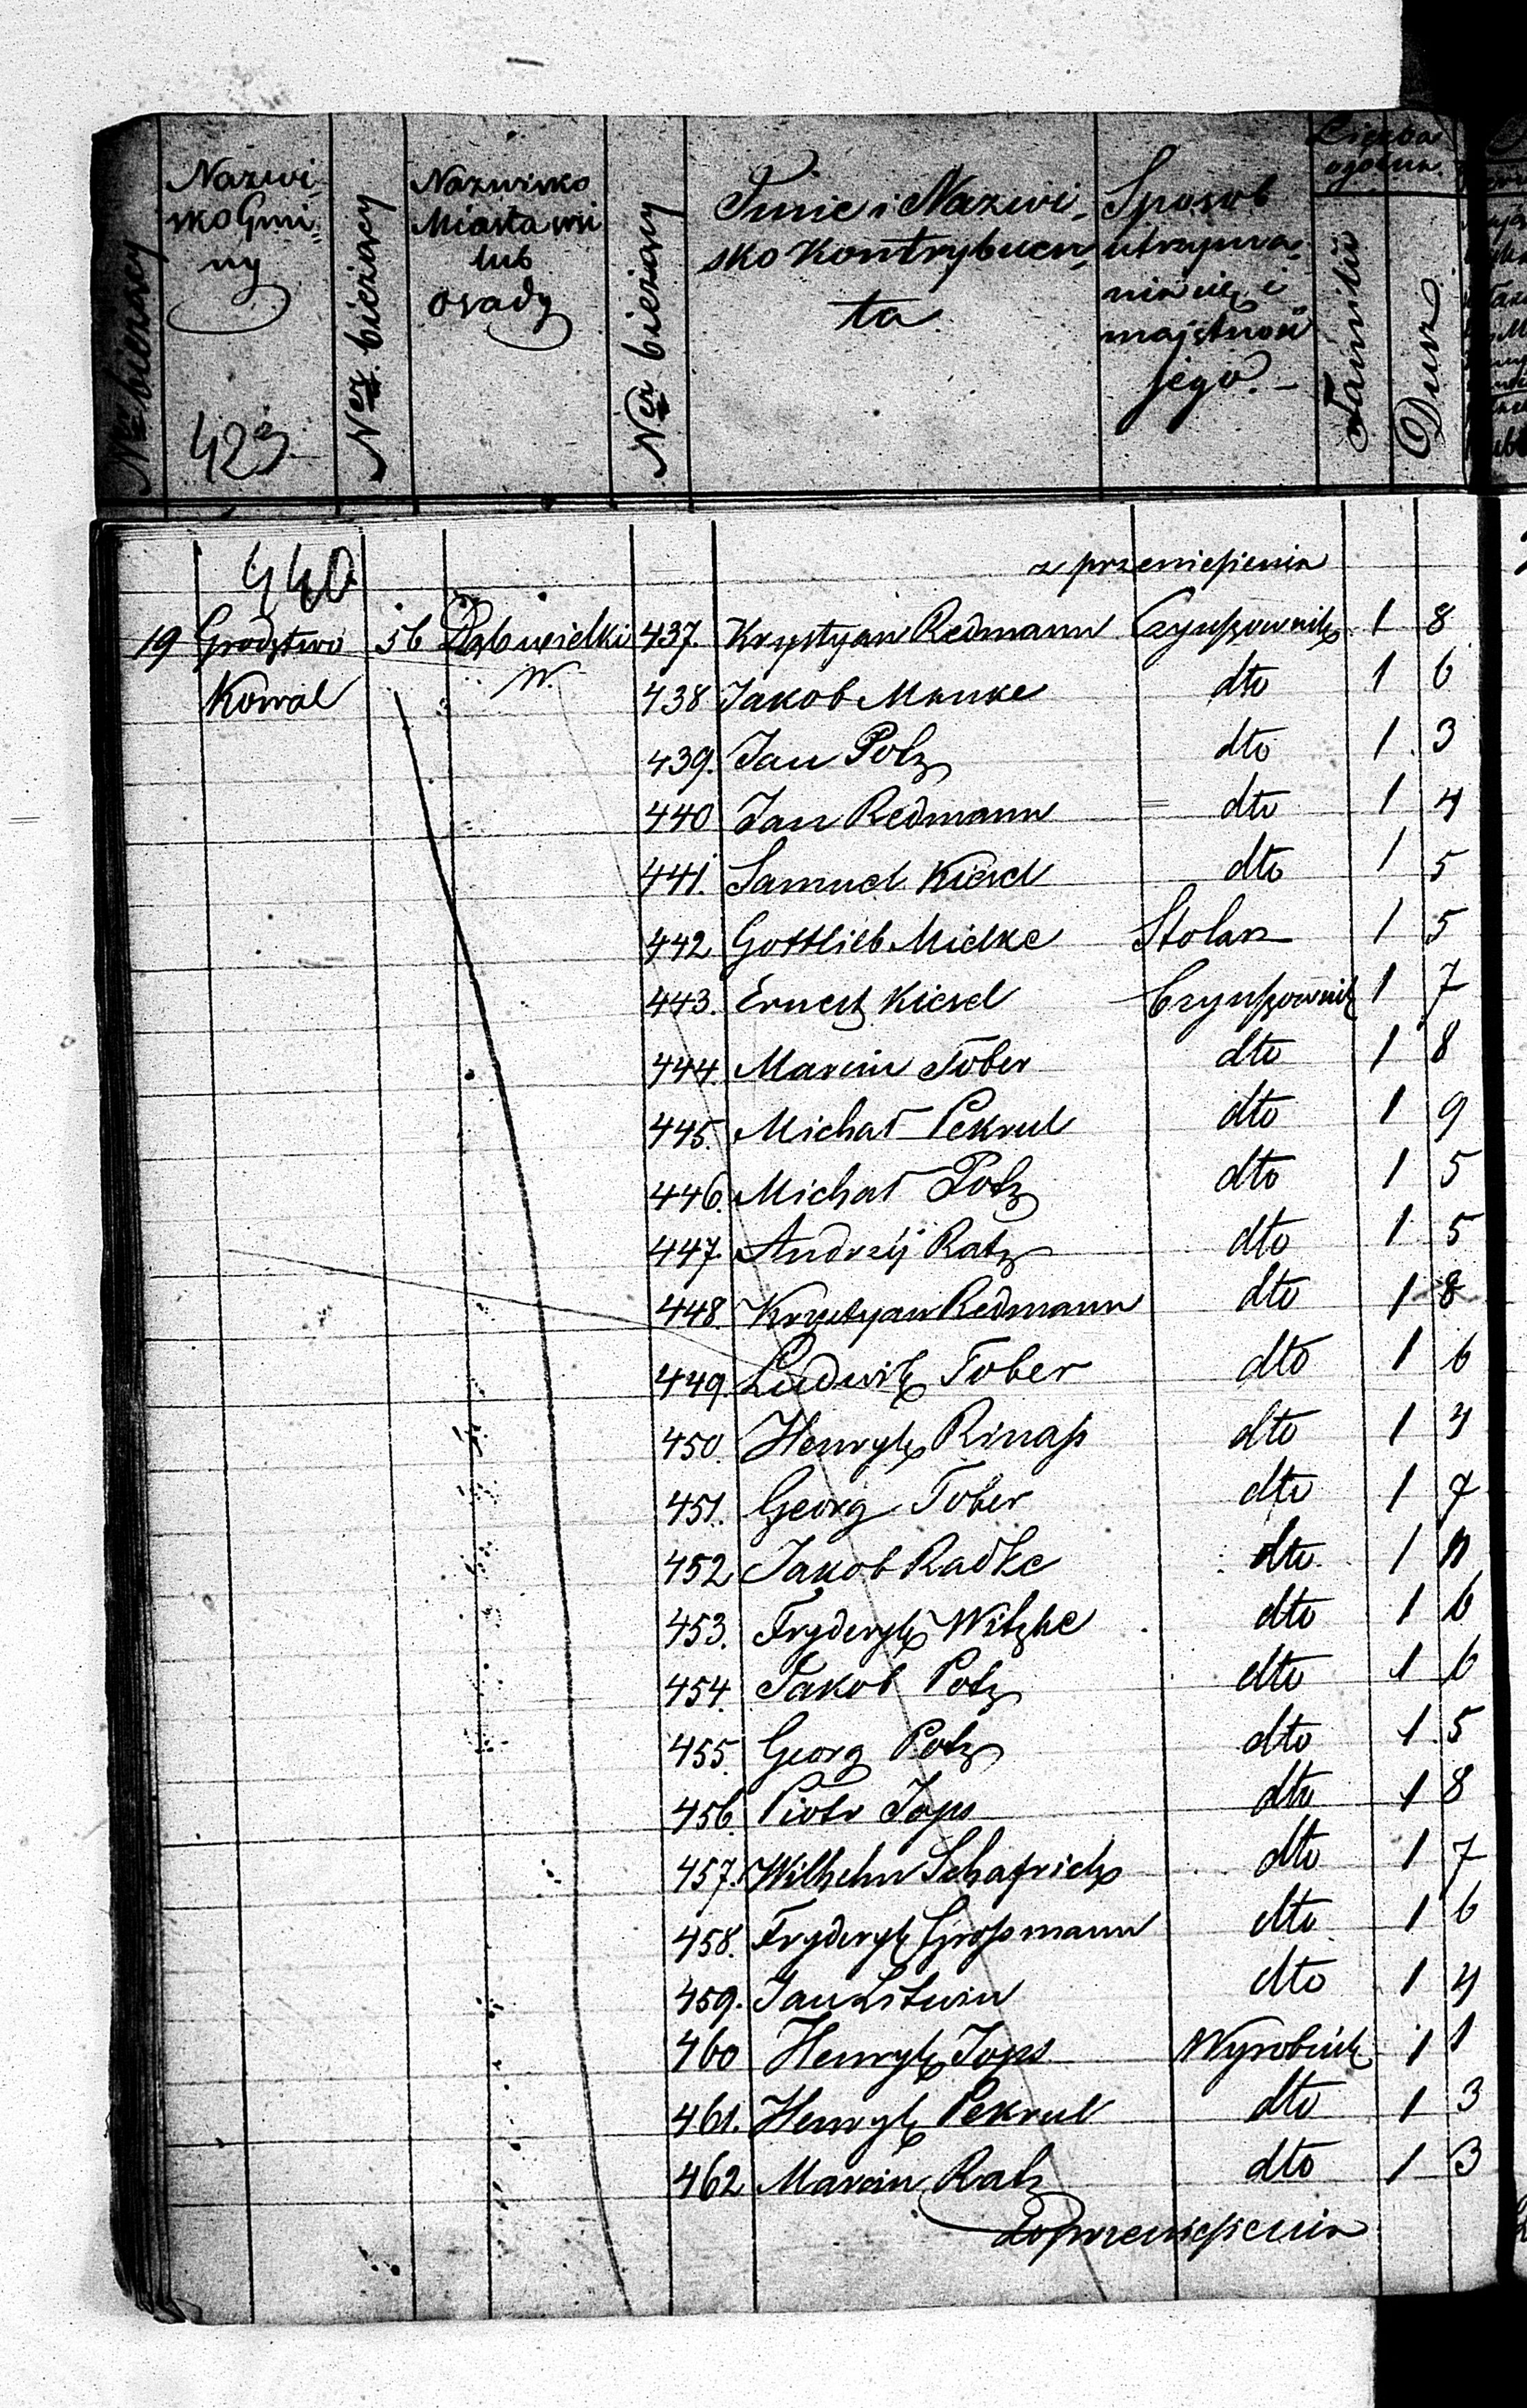 Nro bieżący
Nazwi-
sko Gmi-
ny
423
Ner bieżący
Nazwisko
Miasta wsi
lub
osady
Ner bieżący
Imie i Nazwi-
sko Kontrybuen-
ta
Sposob
utrzyma-
nia się i
majętność
jego.
Liczba
ogólna
Familii
Dusz
440
z przeniesienia
19 Grodztwo 56 Dąb wielki 437. Krystyan Redmann Czynszownik 1 8
Kowal W. 438 Jakob Manke dto 1 6
439. Jan Potz dto 1 3
440 Jan Redmann dto 1 4
441. Samuel Kiesel dto 1 5
442 Gottlieb Mielke Stolarz 1 5
443. Ernest Kiesel Czynszownik 1 7
444. Marcin Tober dto 1 8
445. Michał Pekrul dto 1 9
446. Michał Potz dto 1 5
447. Andrzej Ratz dto 1 5
448 Krystyan Redmann dto 1 8
449. Ludwik Tober dto 1 6
450. Henryk Rinaß dto 1 4
451. Georg Tober dto 1 7
452 Jakob Radke dto 1
453. Fryderyk Witzke dto 1 6
454. Jakob Potz dto 1 6
455. Georg Potz dto 1 5
456. Piotr Jops dto 1 8
457. Wilhelm Schafrick dto 1 7
458. Fryderyk Großmann dto 1 6
459. Jan Litwin dto 1 4
460 Henryk Jops Wyrobnik 1 1
461. Henryk Pekrul dto 1 3
462 Marcin Ratz dto 1 3
do przeniesienia